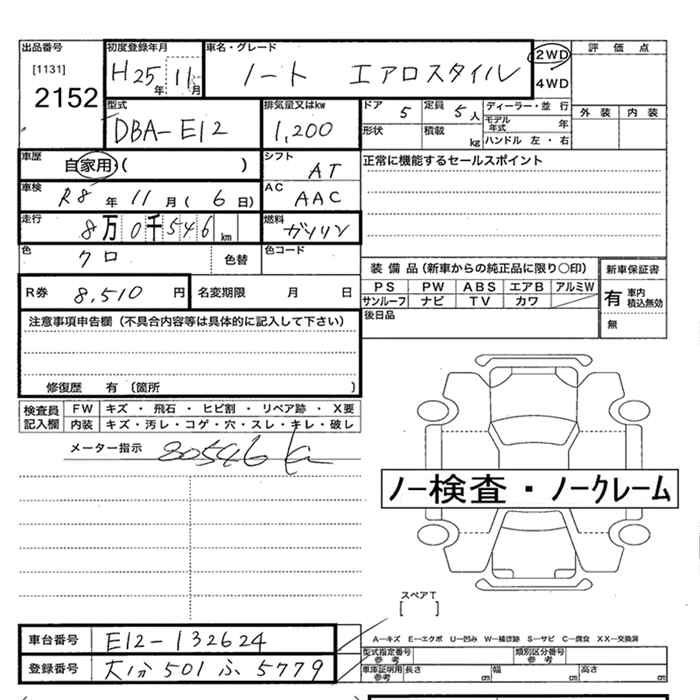 出品番号 初度登録年月 車名・グレード 評価点
[1131] 2152
H25年 11月 ノート エアロスタイル 2WD 4WD
外装 内装
型式 排気量又はkw ドア 5 定員 5人 ディーラー・並行
DBA-E12 1,200 形状 積載 kg モデル年式 年
ハンドル 左・右
車歴 自家用・( ) シフト AT 正常に機能するセールスポイント
車検 R8年 11月 ( 6日) AC AAC
走行 8万0千546km 燃料 ガソリン
色 クロ 色替 色コード
装備品(新車からの純正品に限り○印) 新車保証書
R券 8,510円 名変期限 月 日
PS PW ABS エアB アルミW 有 車内積込無効
サンルーフ ナビ TV カワ
後日品 無
注意事項申告欄(不具合内容等は具体的に記入して下さい)
修復歴 有 (箇所 )
検査員記入欄 FW キズ・飛石・ヒビ割・リペア跡・X要
内装 キズ・汚レ・コゲ・穴・スレ・キレ・破レ
メーター指示 80546
ノー検査・ノークレーム
スペアT
[ ]
車台番号 E12-132624
A-キズ E-エクボ U-凹み W-補修跡 S-サビ C-腐食 XX-交換済
型式指定番号 参考 類別区分番号 参考
登録番号 大分 501 ふ 5779
車庫証明用 参考 長さ cm 幅 cm 高さ cm